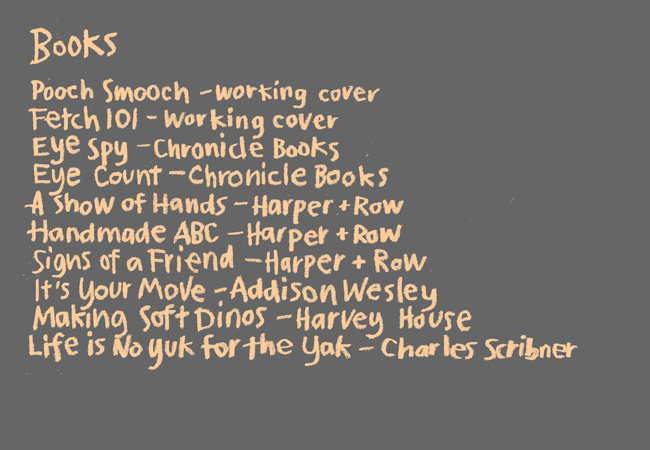 Books
Pooch Smooch - working cover
Fetch 101 - working cover
Eye Spy - Chronicle Books
Eye Count - Chronicle Books
A Show of Hands - Harper + Row
Handmade ABC - Harper + Row
Signs of a Friend - Harper + Row
It's Your Move - Addison Wesley
Making Soft Dinos - Harvey House
Life is No yuk for the Yak - Charles Scribner